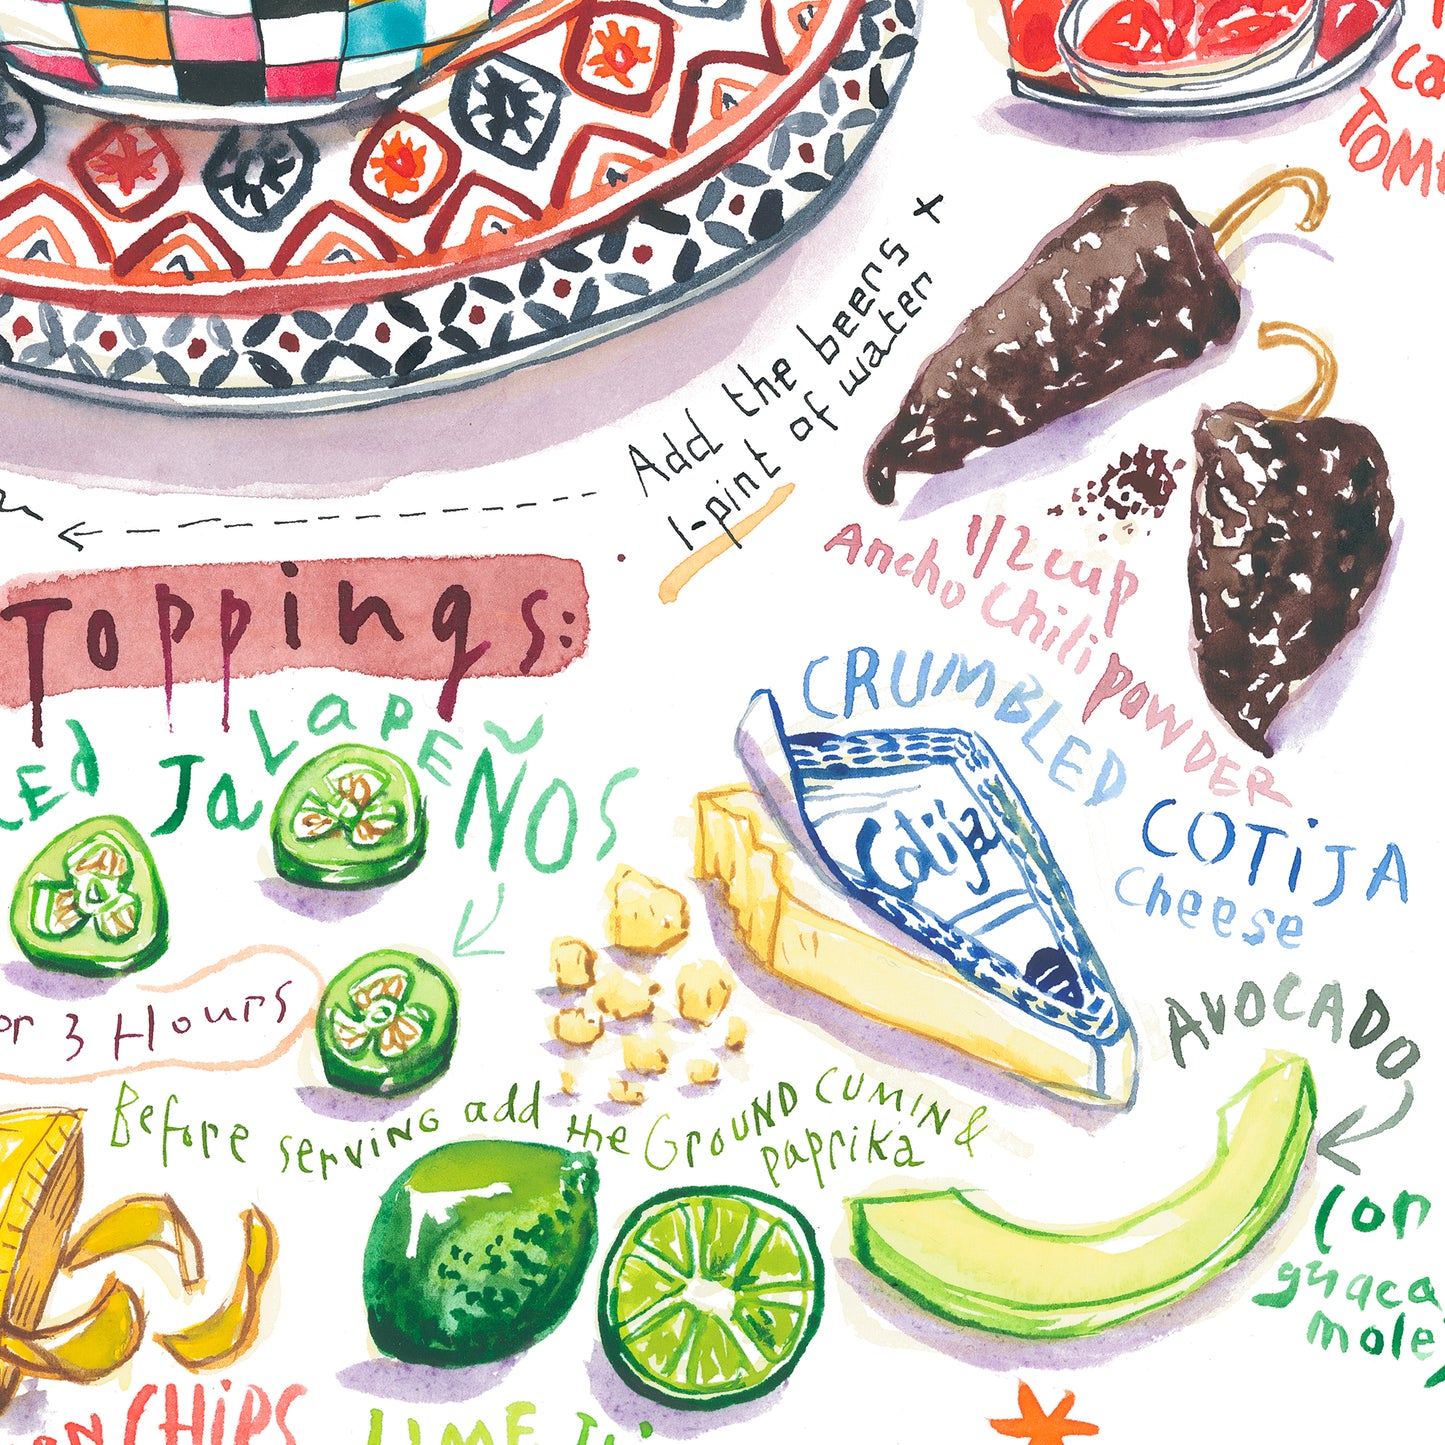 ca
TOM
Add the beers +
1-pint of water
1/2 cup
Ancho Chili powder
Toppings:
JaLapEÑOS
CRUMBLED
COTiJA
cheese
Cotija
3 Hours
AVOCADO
Before serving add the GroUND CUMIN &
paprika
(or
guaca
mole)
CHiPS
LIME